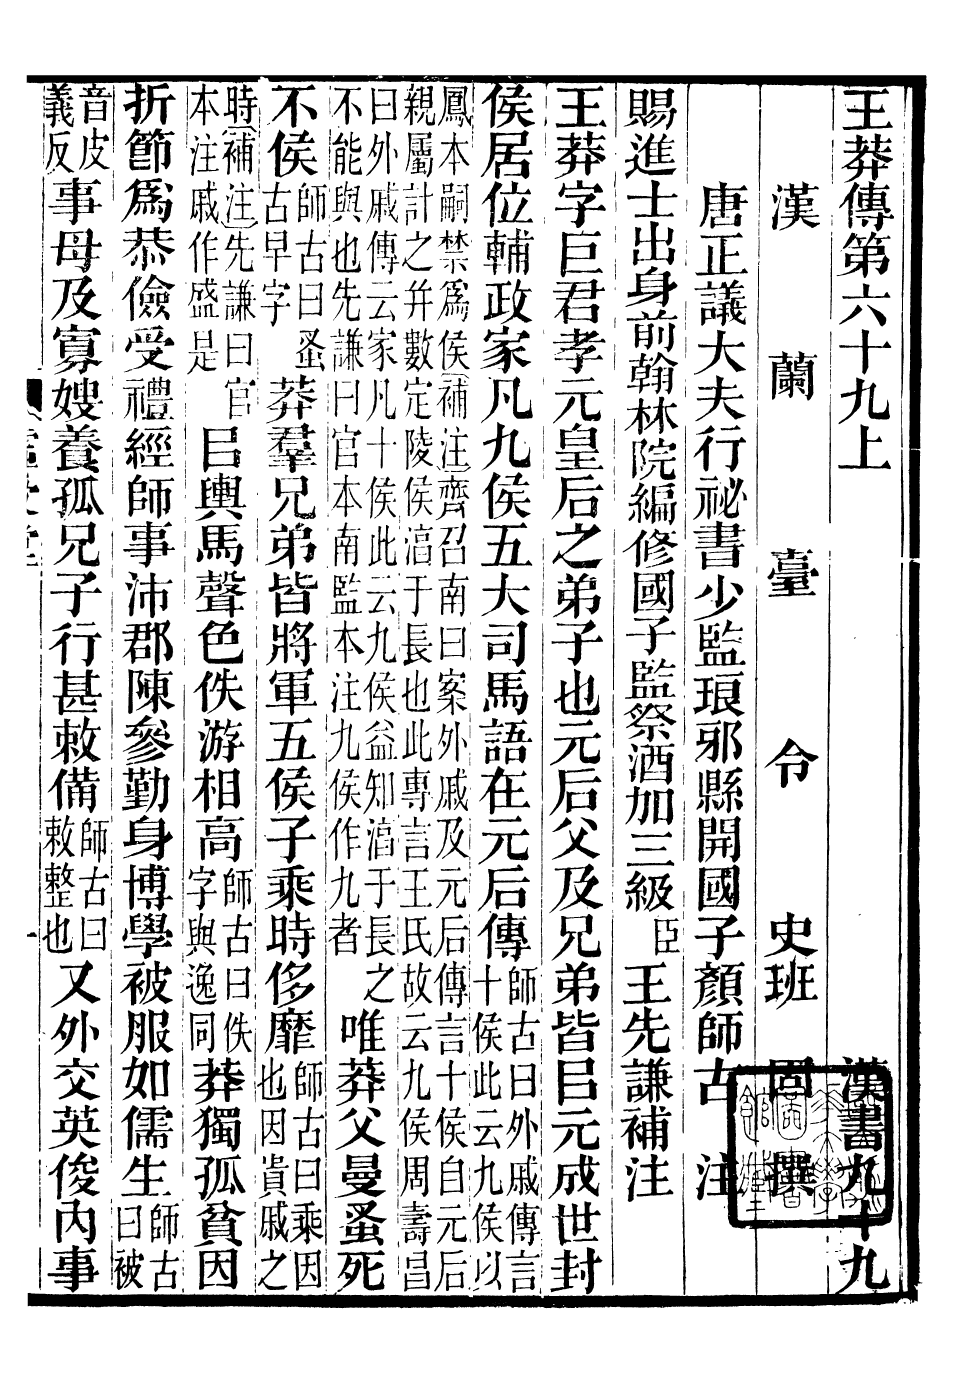 王莽傳第六十九上 漢書九十九
漢蘭臺令史班固撰
唐正議大夫行祕書少監琅邪縣開國子顏師古注
賜進士出身前翰林院編修國子監祭酒加三級臣王先謙補注
王莽字巨君孝元皇后之弟子也元后父及兄弟皆㠯元成世封
侯居位輔政家凡九侯五大司馬語在元后傳師古曰外戚傳言十侯此云九侯以
鳳本嗣禁爲侯〔補注〕齊召南曰案外戚及元后傳言十侯自元后親屬計之幷數定陵侯湻于長也此專言王氏故云九侯周壽昌
曰外戚傳云家凡十侯此云九侯益知湻于長之不能與也先謙曰官本南監本注九侯作九者唯莽父曼蚤死
不侯師古曰蚤古早字莽羣兄弟皆將軍五侯子乘時侈靡師古曰乘因也因貴戚之
時〔補注〕先謙曰官本注戚作盛是㠯輿馬聲色佚游相高師古曰佚字與逸同莽獨孤貧因
折節爲恭儉受禮經師事沛郡陳參勤身博學被服如儒生師古曰被
音皮義反事母及寡嫂養孤兄子行甚敕備師古曰敕整也又外交英俊內事